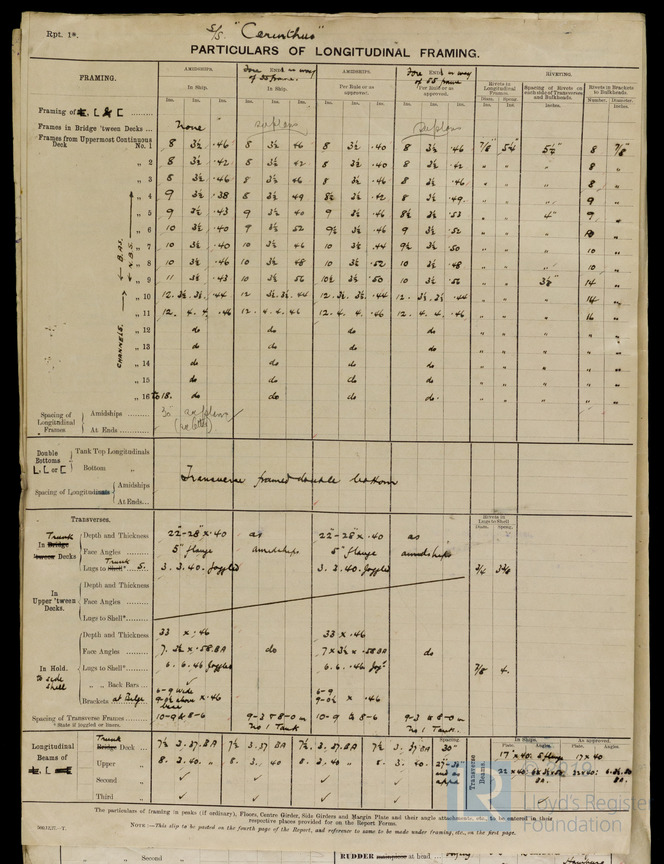 Rpt. 1*.
S/S. "Corinthus".
PARTICULARS OF LONGITUDINAL FRAMING.
FRAMING. AMIDSHIPS. Fore ENDS in way of 55 frame. AMIDSHIPS. Fore ENDS in way of 55 frame. RIVETING.
In Ship. In Ship. Per Rule or as approved. Per Rule or as approved. Rivets in Longitudinal Frames. Spacing of Rivets on each side of Transverses and Bulkheads. Rivets in Brackets to Bulkheads.
Ins. Ins. Ins. Ins. Ins. Ins. Ins. Ins. Ins. Ins. Ins. Ins. Diam. Spcng. Inches. Number. Diameter.
Framing of
Frames in Bridge 'tween Decks ... None
Frames from Uppermost Continuous Deck No. 1 8 3½ .46 8 3½ 46 8 3½ .40 8 3½ .46 7/8" 5¼" 5¼" 8 7/8"
„ 2 8 3½ .42 8 3½ 42 8 3½ .40 8 3½ .42 „ „ „ 8 „
„ 3 8 3½ .46 8 3½ 46 8 3½ .46 8 3½ .46 „ „ „ 8 „
„ 4 9 3½ .38 8 3½ 49 8½ 3½ .42 8 3½ .49. „ „ „ 9 „
„ 5 9 3½ .43 9 3½ 40 9 3½ .46 8½ 3½ .53 „ „ 4" 9 „
„ 6 10 3½ .40 9 3½ 52 9½ 3½ .46 9 3½ .52 „ „ „ 10 „
„ 7 10 3½ .40 10 3½ 46 10 3½ .44 9½ 3½ .50 „ „ „ 10 „
„ 8 10 3½ .46 10 3½ 48 10 3½ .52 10 3½ .48 „ „ „ 10 „
„ 9 11 3½ .43 10 3½ 56 10½ 3½ .50 10 3½ .56 „ „ 3½" 14 „
„ 10 12. 3½. 3½. .44 12 3½. 3½. .44 12. 3½. 3½. .44 12. 3½. 3½ .44 „ „ „ 14 „
„ 11 12. 4. 4. .46 12. 4. 4. .46 12. 4. 4. .46 12. 4. 4. .46 „ „ „ 16 „
„ 12 do do do do „ „ „
„ 13 do do do do „ „ „
„ 14 do do do do „ „ „
„ 15 do do do do „ „ „
„ 16 to 18. do do do do. „ „ „
CHANNELS.
Spacing of Longitudinal Frames Amidships 30"
At Ends
Double Bottoms L, L or [ Tank Top Longitudinals
Bottom „
Transverse framed double bottom
Spacing of Longitudinals Amidships
At Ends...
Transverses.
Rivets in Lugs to Shell
Diam. Spcng.
In Trunk Bridge 'tween Decks Depth and Thickness 22"-28" x .40 as 22"-28" x .40 as
Face Angles 5" flange amidships 5" flange amidships
Lugs to Trunk S. 3. 3. 40. Joggled 3. 3. 40. Joggled 3/4
In Upper 'tween Decks. Depth and Thickness
Face Angles
Lugs to Shell*
In Hold. To side Shell Depth and Thickness 33 x .46 33 x .46
Face Angles 7. 3½ x .58 BA do 7 x 3½ x .58 BA do
Lugs to Shell* 6. 6. .46 Joggled 6. 6. .46 Jogd 7/8 4.
„ „ Back Bars ✓
Brackets at Bilge
Spacing of Transverse Frames 10-9 & 8-6 9-3 & 8-0 in No 1 Tank 10-9 & 8-6 9-3 & 8-0 in No 1 Tank.
* State if joggled or liners.
Longitudinal Beams of Trunk Bridge Deck ... 7½ 3. .37. BA 7½ 3. .37 BA 7½. 3. .37. BA 7½ 3. .37 BA Spacing 30"
Upper „ 8. 3. 40. „ 8. 3. 40 8. 3. 40. „ 8 3. 40.
Second „ ✓ ✓ ✓ ✓
Third „ ✓ ✓ ✓ ✓
Transverse Beams. In Ship. As approved.
Plate. Angles. Plate. Angles
17" x 40. 5 flange 17 x 40
The particulars of framing in peaks (if ordinary), Floors, Centre Girder, Side Girders and Margin Plate and their angle attachments, etc., to be entered in their
respective places provided for on the Report Forms.
NOTE.—This slip to be posted on the fourth page of the Report, and reference to same to be made under framing, etc., on the first page.
© 2019
Lloyd's Register
Foundation
„ Second „
RUDDER mainpiece at head